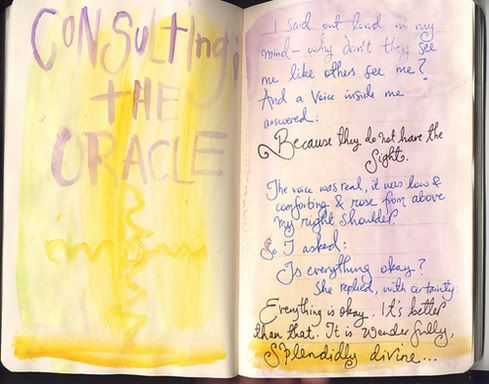 CONSULTING
THE
ORACLE
I said out loud in my
mind - why don't they see
me like others see me?
And a Voice inside me
answered:
Because they do not have the
Sight.
The voice was real, it was low &
comforting & rose from above
my right shoulder.
So I asked:
Is everything okay?
She replied, with certainty:
Everything is okay. It's better
than that. It is Wonderfully,
Splendidly divine...